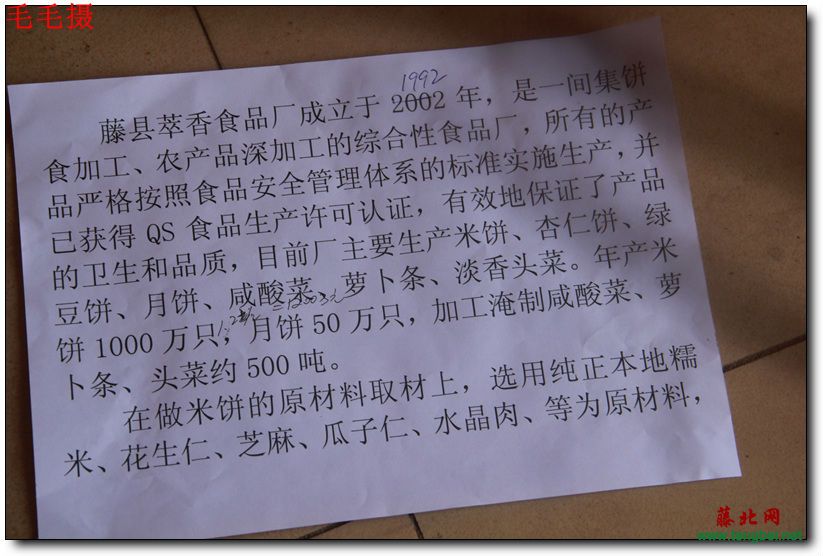 毛毛摄
1992
藤县萃香食品厂成立于 2002 年，是一间集饼
食加工、农产品深加工的综合性食品厂，所有的产
品严格按照食品安全管理体系的标准实施生产，并
已获得 QS 食品生产许可认证，有效地保证了产品
的卫生和品质，目前厂主要生产米饼、杏仁饼、绿
豆饼、月饼、咸酸菜、萝卜条、淡香头菜。年产米
饼 1000 万只，月饼 50 万只，加工淹制咸酸菜、萝
卜条、头菜约 500 吨。
在做米饼的原材料取材上，选用纯正本地糯
米、花生仁、芝麻、瓜子仁、水晶肉、等为原材料，
藤北网